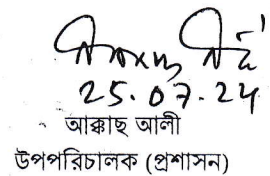 25.07.24
আক্কাছ আলী
উপপরিচালক (প্রশাসন)